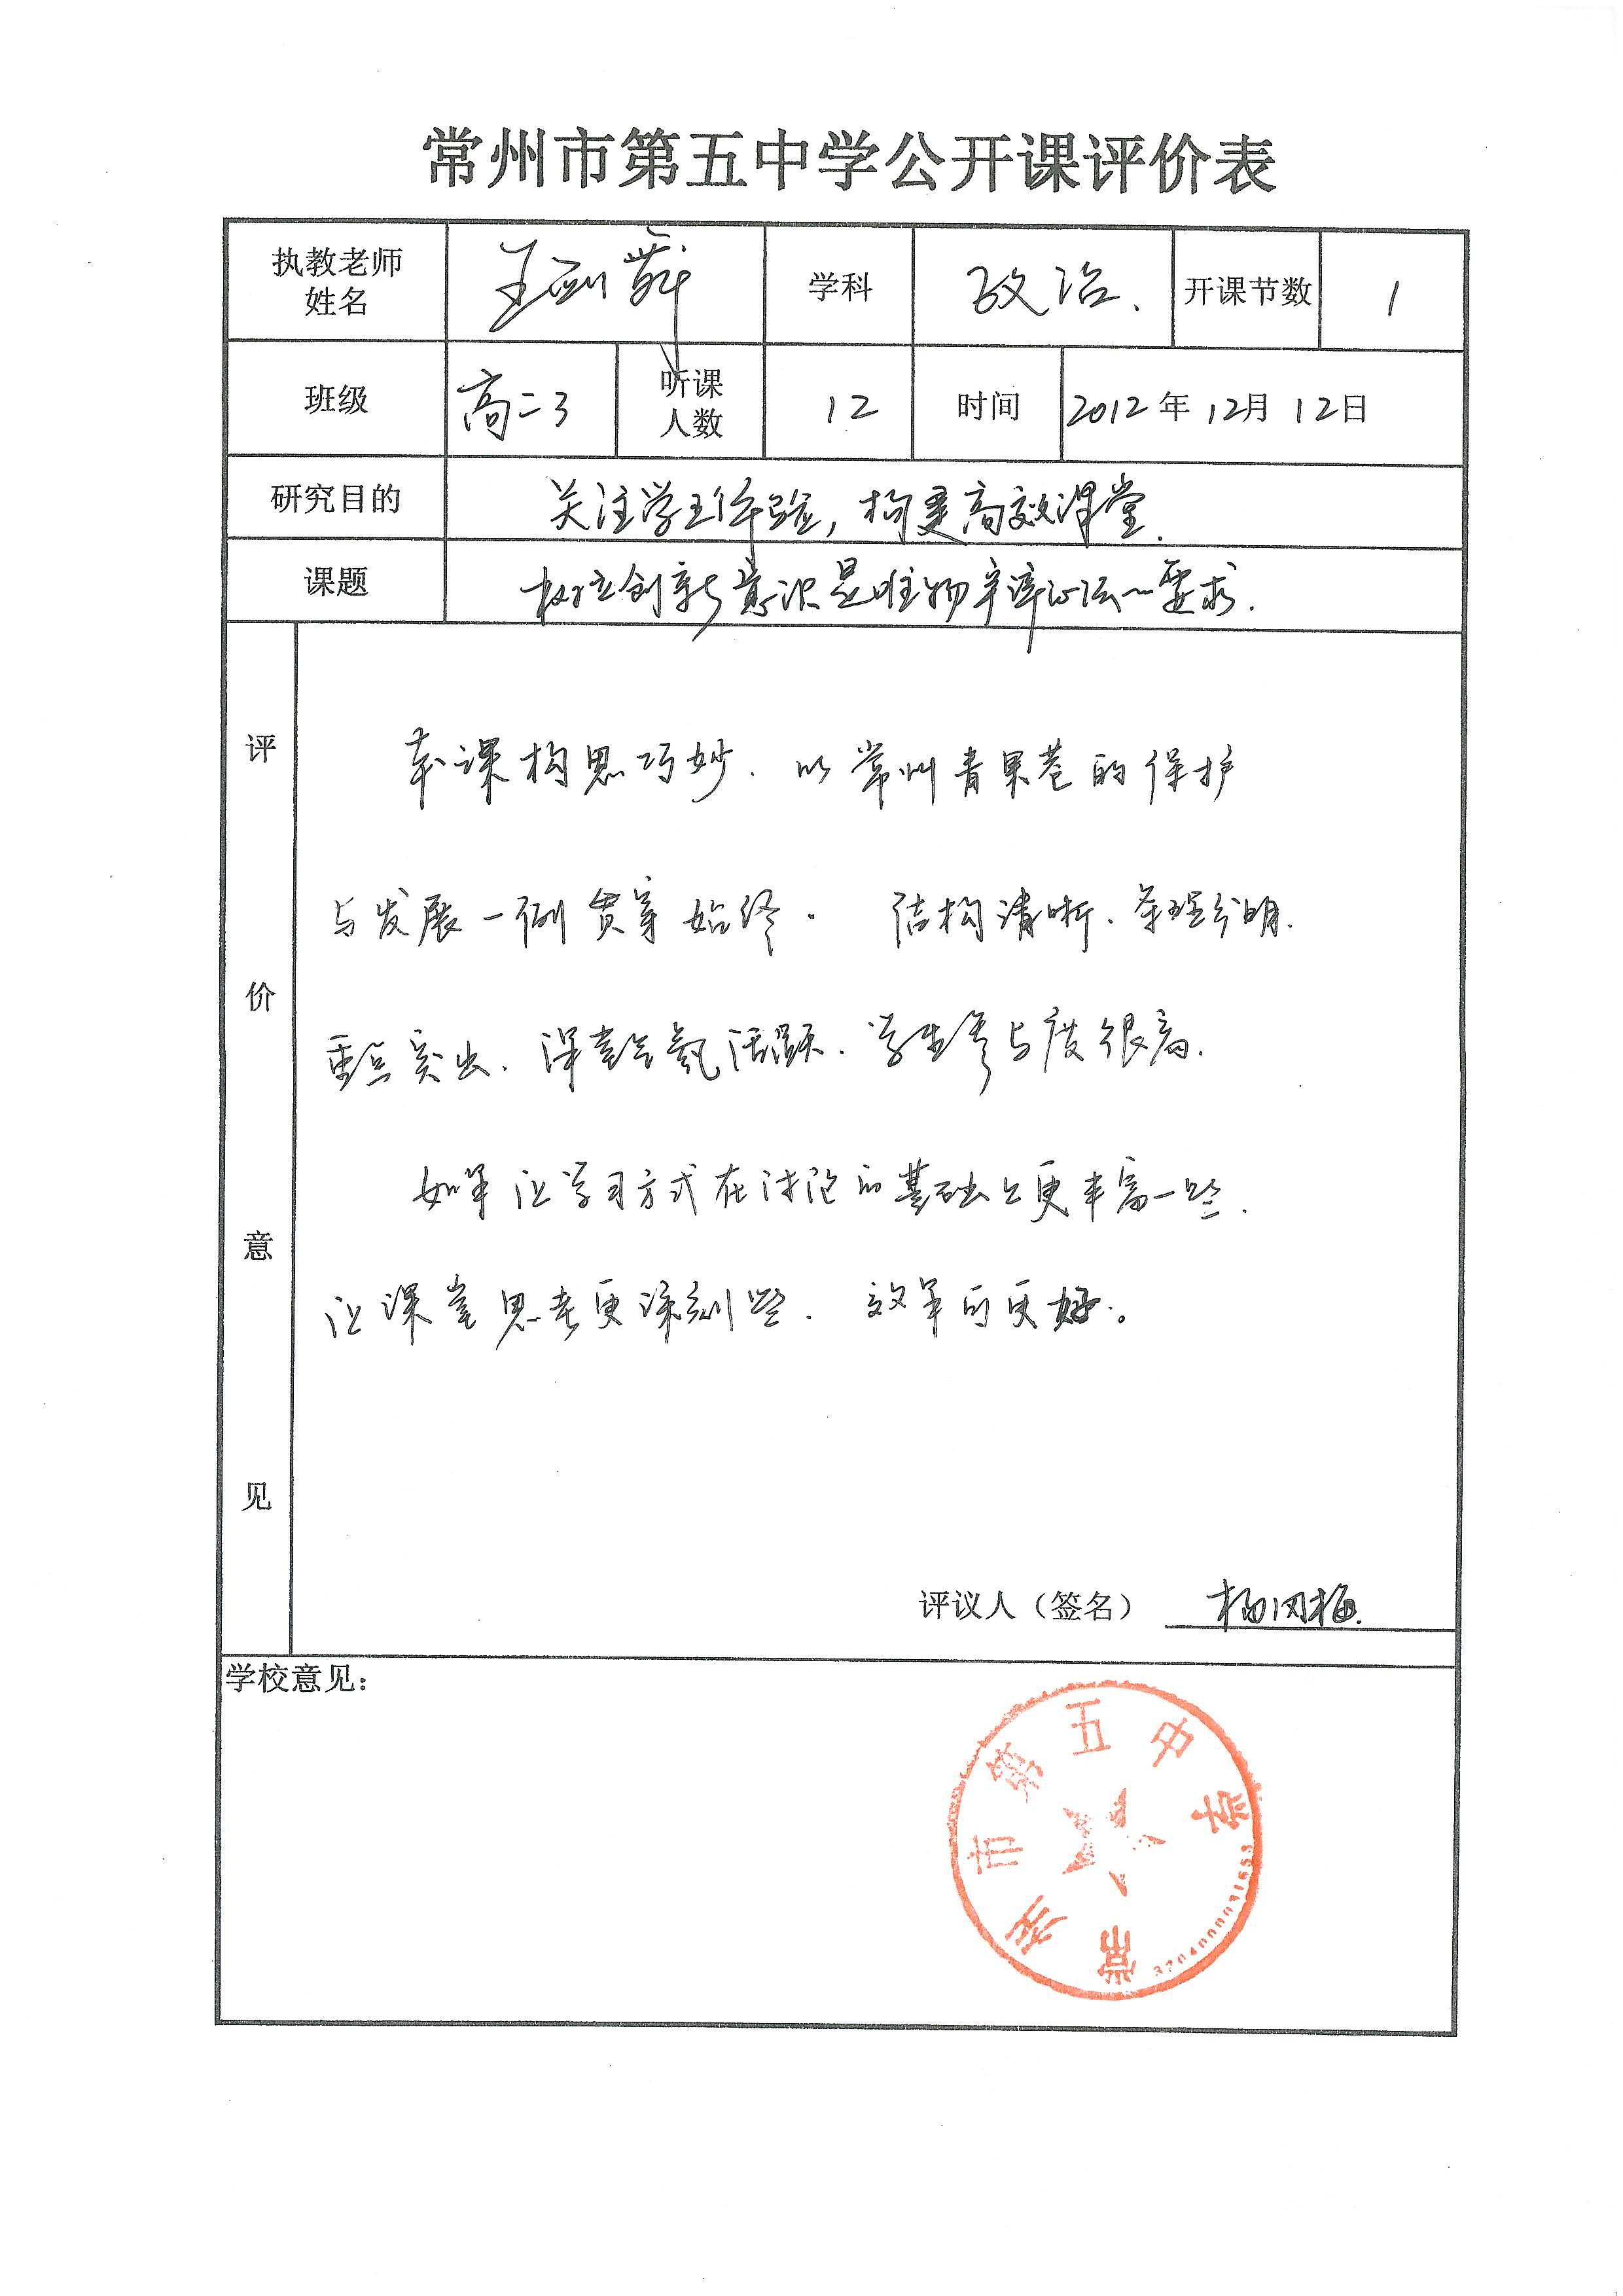 常州市第五中学公开课评价表
执教老师姓名 王剑舞 学科 政治. 开课节数 1
班级 高二3 听课人数 12 时间 2012年12月12日
研究目的 关注学生体验，构建高效课堂.
课题 树立创新意识是唯物辩证法的要求.
评价意见
本课构思巧妙. 以常州青果巷的保护
与发展一例贯穿始终. 结构清晰. 条理分明.
重点突出. 课堂气氛活跃. 学生参与度很高.
如果让学习方式在讨论的基础上更丰富一些.
让课堂思考更深刻些. 效果可更好。
评议人（签名） 杨
学校意见：
常州市第五中学